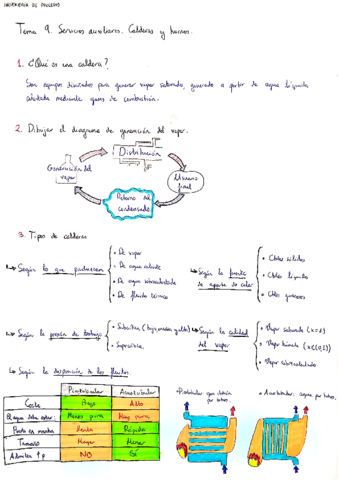 INGENIERÍA DE PROCESOS
Tema 9. Servicios auxiliares. Calderas y hornos.
1. ¿Qué es una caldera?
Son equipos diseñados para generar vapor saturado, generado a partir de agua líquida
calentada mediante gases de combustión.
2. Dibujar el diagrama de generación del vapor.
Distribución
Generación del
vapor
Usuario
final
Retorno del
condensado
3. Tipos de calderas
Según lo que producen
• De vapor
• De agua caliente
• De agua sobrecalentada
• De fluido térmico
Según la fuente
de aporte de calor
• Cbles sólidos
• Cbles líquidos
• Cbles gaseosos
Según la presión de trabajo
• Subcrítica
• Supercrítica
Según la calidad
del vapor
• Vapor saturado (x=1)
• Vapor húmedo
• Vapor sobrecalentado
Según la disposición de los fluidos
Pirotubular
Acuotubular
Coste
Bajo
Alto
El agua debe estar:
Menos pura
Muy pura
Puesta en marcha
Lenta
Rápida
Tamaño
Mayor
Menor
Admiten ↑p
NO
SÍ
• Pirotubular:
por tubos.
• Acuotubular: agua por tubos.